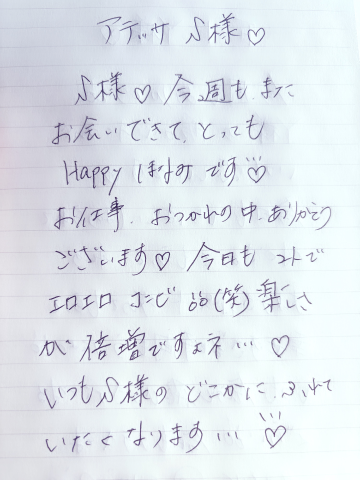 アテッサ S様♡
S様♡ 今週も また
お会いできて、とっても
Happy ほなみです♡
お仕事、おつかれの中、ありがとう
ございます♡ 今日も ふたりで
エロエロ コンビ (笑) 楽しさ
が 倍増ですよネ…♡
いつもS様の どこかに、ふれて
いたくなります…♡